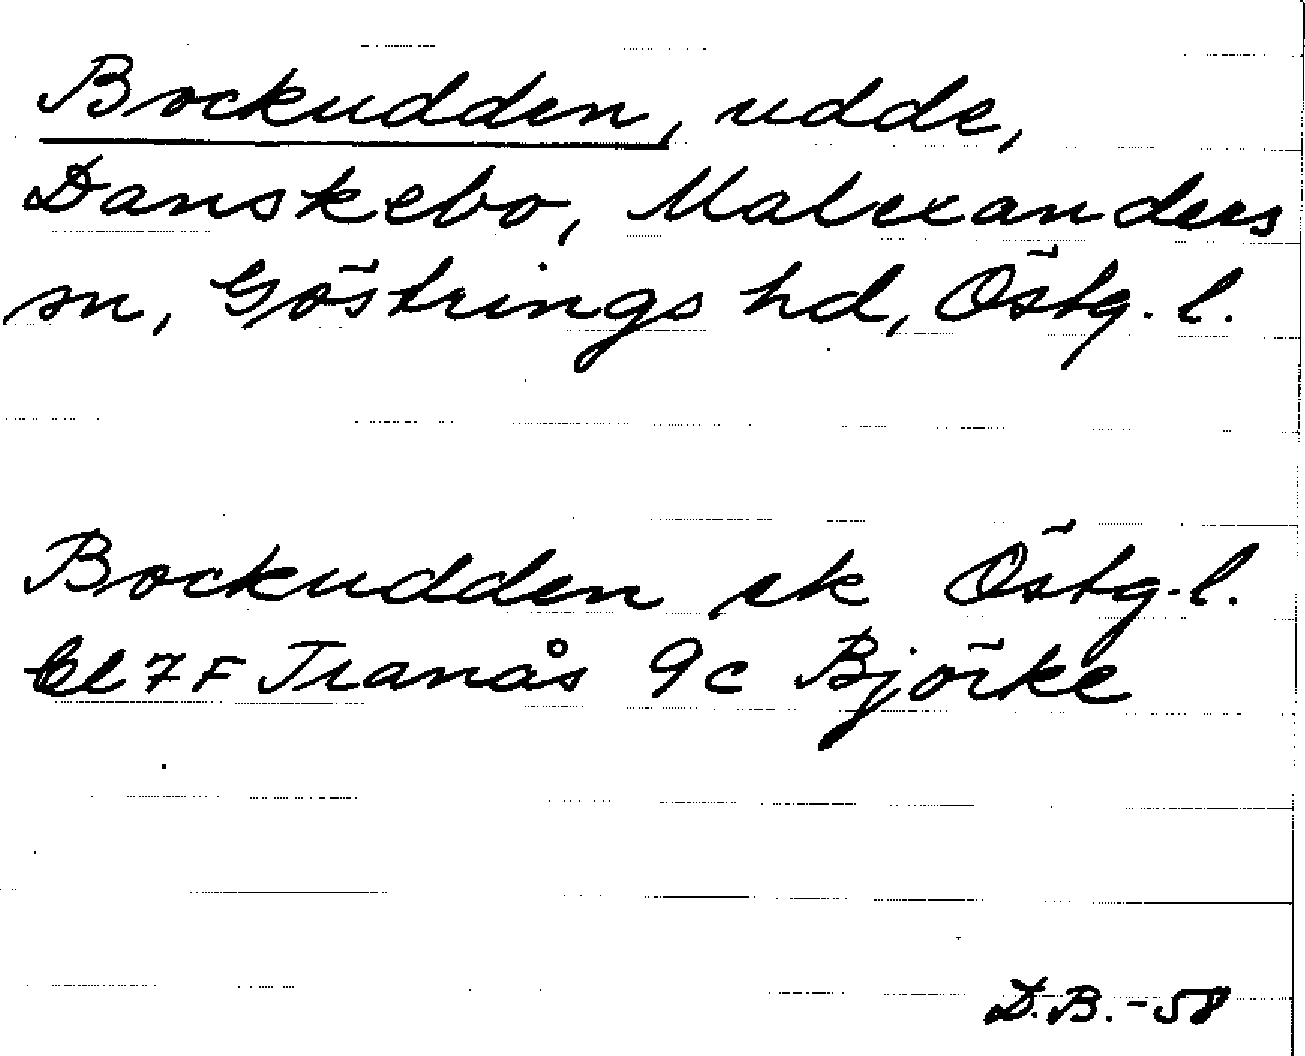 Bockudden, udde,
Danskebo, Malexanders
sn, Göstrings hd, Östg. l.
Bockudden ek Östg. l.
bl 7 F Tranås 9c Björke
D.B. -58